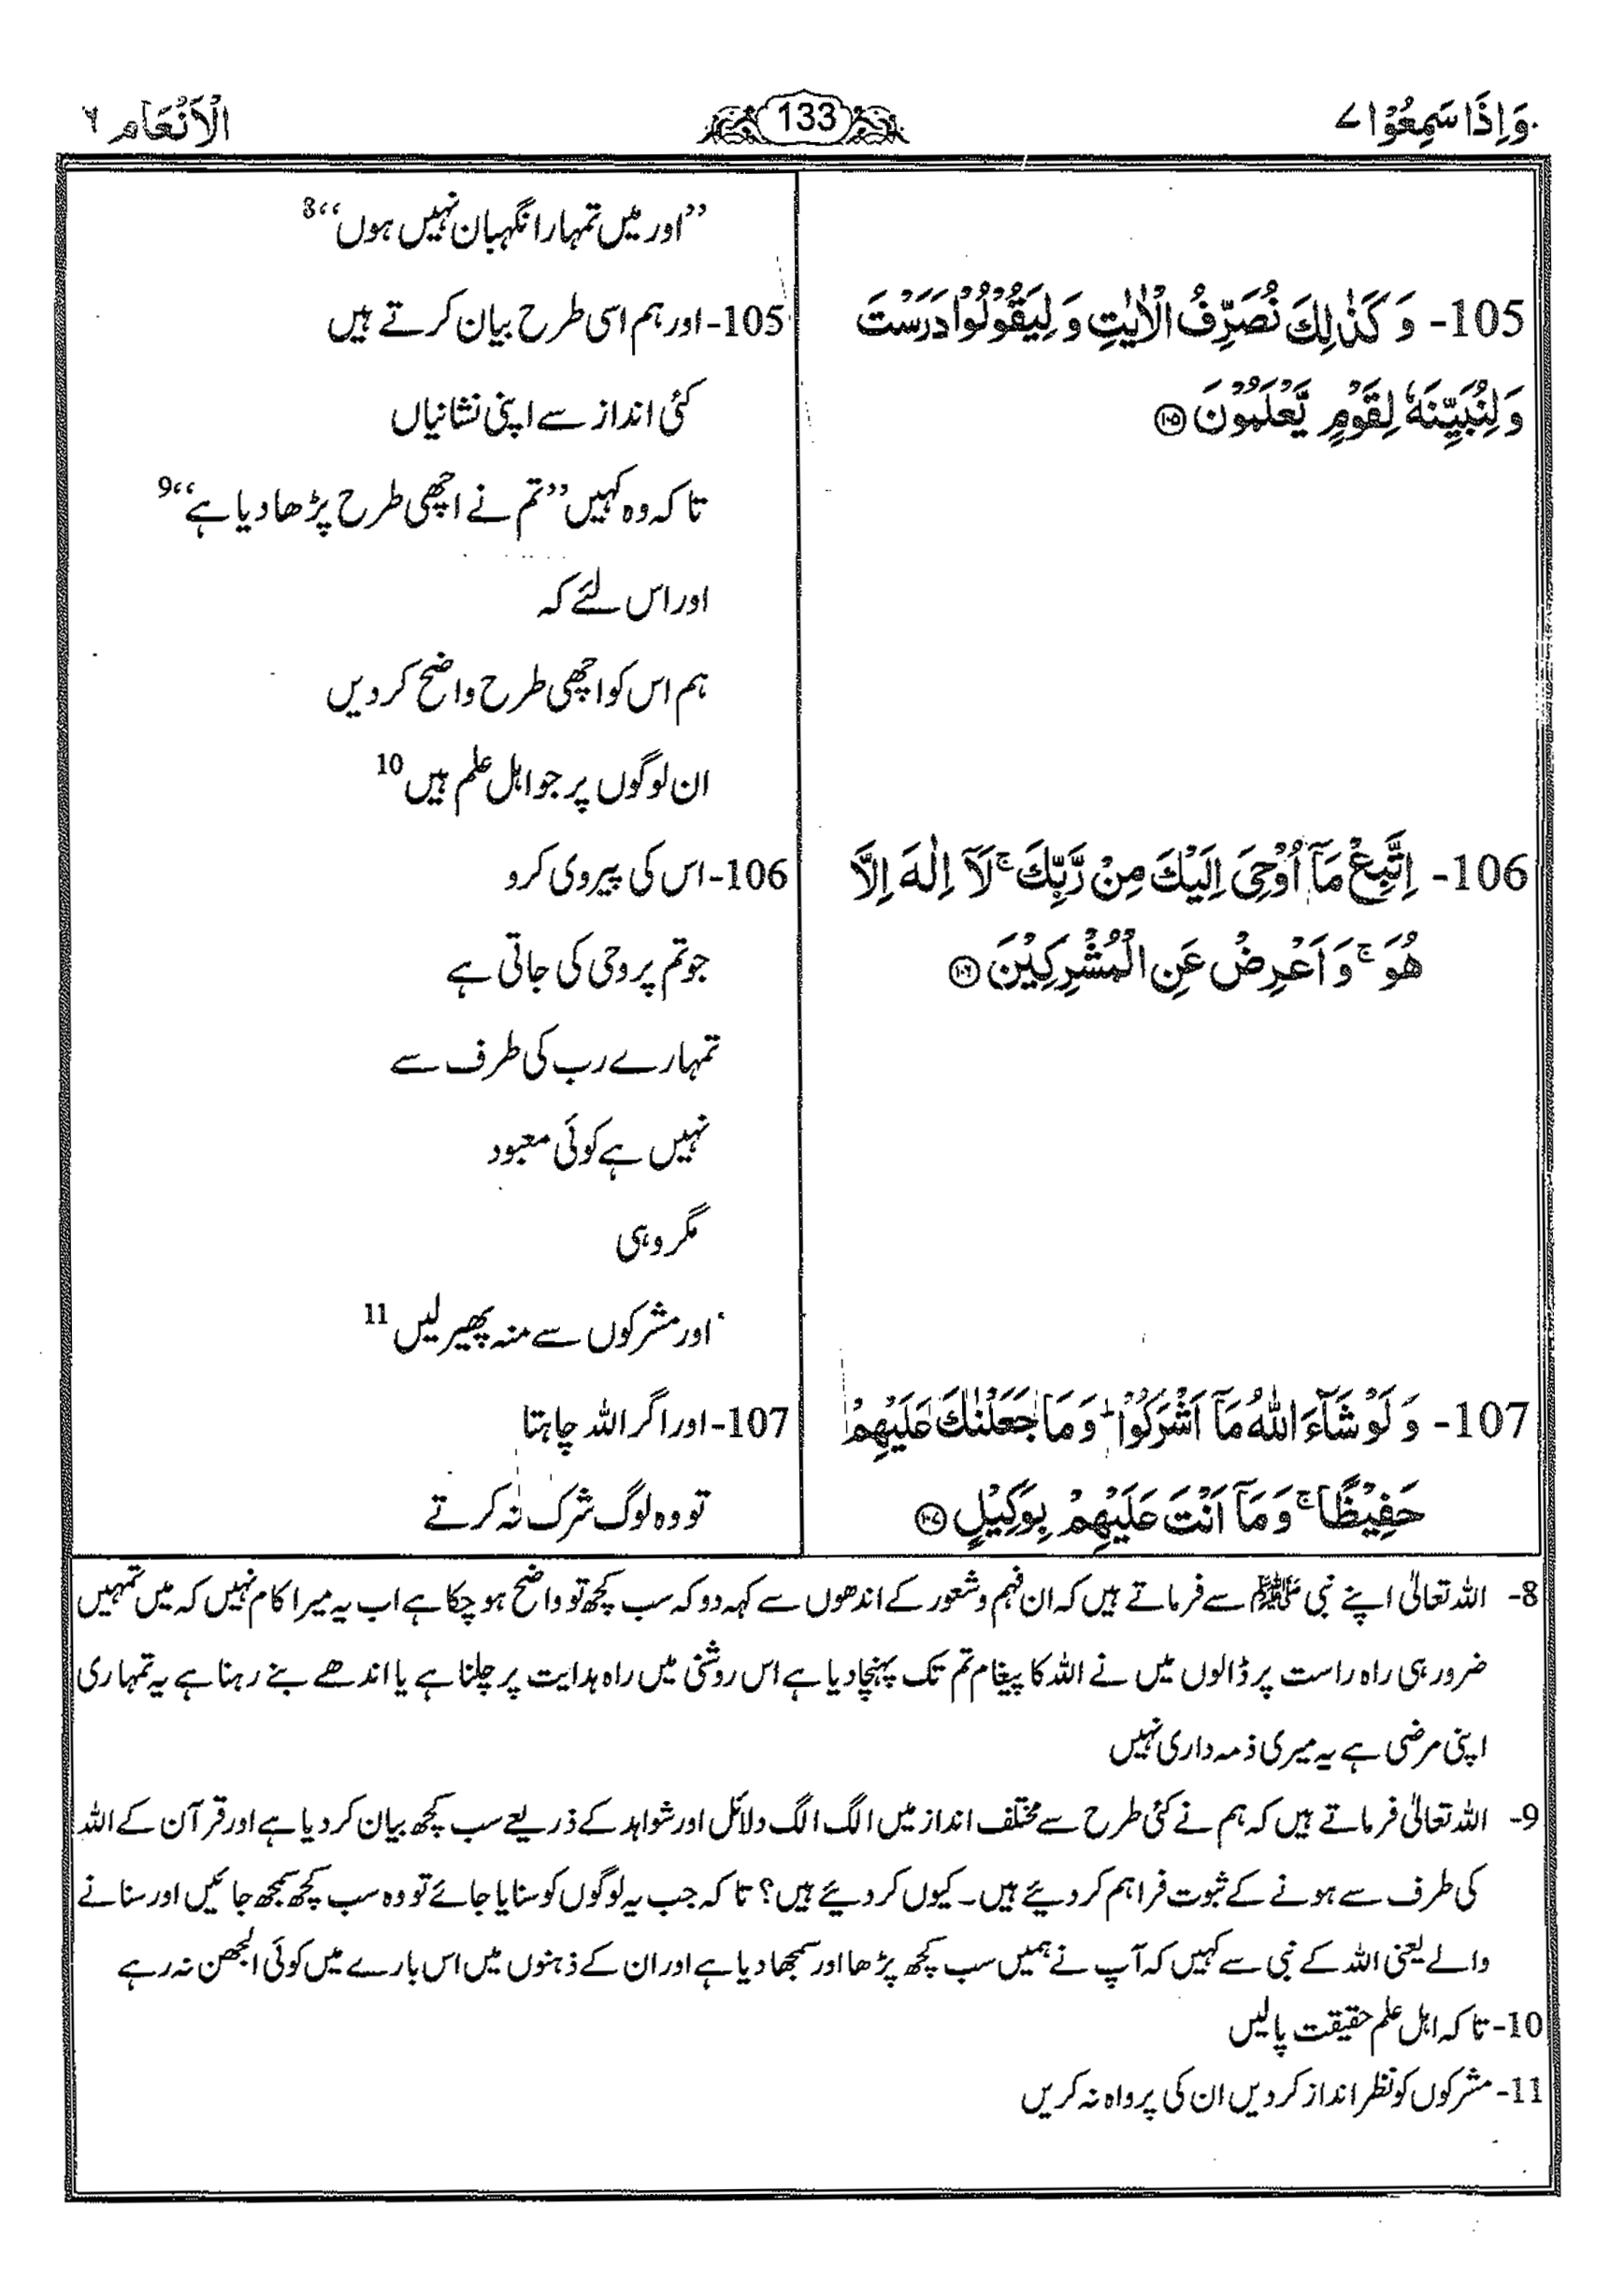 وَاِذَا سَمِعُوْا ۷
133
الْاَنْعَام ٦
105- وَ كَذٰلِكَ نُصَرِّفُ الْاٰيٰتِ وَ لِيَقُوْلُوْا دَرَسْتَ
وَ لِنُبَيِّنَهٗ لِقَوْمٍ يَّعْلَمُوْنَ ۝۱۰۵
106- اِتَّبِعْ مَاۤ اُوْحِيَ اِلَيْكَ مِنْ رَّبِّكَ ۚ لَاۤ اِلٰهَ اِلَّا
هُوَ ۚ وَ اَعْرِضْ عَنِ الْمُشْرِكِيْنَ ۝۱۰۶
107- وَ لَوْ شَآءَ اللّٰهُ مَاۤ اَشْرَكُوْا ؕ وَ مَا جَعَلْنٰكَ عَلَيْهِمْ
حَفِيْظًا ۚ وَ مَاۤ اَنْتَ عَلَيْهِمْ بِوَكِيْلٍ ۝۱۰۷
”اور میں تمہارا نگہبان نہیں ہوں“8
105- اور ہم اسی طرح بیان کرتے ہیں
کئی انداز سے اپنی نشانیاں
تاکہ وہ کہیں ”تم نے اچھی طرح پڑھا دیا ہے“9
اور اس لئے کہ
ہم اس کو اچھی طرح واضح کر دیں
ان لوگوں پر جو اہل علم ہیں10
106- اس کی پیروی کرو
جو تم پر وحی کی جاتی ہے
تمہارے رب کی طرف سے
نہیں ہے کوئی معبود
مگر وہی
اور مشرکوں سے منہ پھیر لیں11
107- اور اگر اللہ چاہتا
تو وہ لوگ شرک نہ کرتے
8- اللہ تعالیٰ اپنے نبی ﷺ سے فرماتے ہیں کہ ان فہم و شعور کے اندھوں سے کہہ دو کہ سب کچھ تو واضح ہو چکا ہے اب یہ میرا کام نہیں کہ میں تمہیں
ضرور ہی راہ راست پر ڈالوں میں نے اللہ کا پیغام تم تک پہنچا دیا ہے اس روشنی میں راہ ہدایت پر چلنا ہے یا اندھے بنے رہنا ہے یہ تمہاری
اپنی مرضی ہے یہ میری ذمہ داری نہیں
9- اللہ تعالیٰ فرماتے ہیں کہ ہم نے کئی طرح سے مختلف انداز میں الگ الگ دلائل اور شواہد کے ذریعے سب کچھ بیان کر دیا ہے اور قرآن کے اللہ
کی طرف سے ہونے کے ثبوت فراہم کر دیئے ہیں۔ کیوں کر دیئے ہیں؟ تاکہ جب یہ لوگوں کو سنایا جائے تو وہ سب کچھ سمجھ جائیں اور سنانے
والے یعنی اللہ کے نبی سے کہیں کہ آپ نے ہمیں سب کچھ پڑھا اور سمجھا دیا ہے اور ان کے ذہنوں میں اس بارے میں کوئی الجھن نہ رہے
10- تاکہ اہل علم حقیقت پالیں
11- مشرکوں کو نظر انداز کر دیں ان کی پرواہ نہ کریں